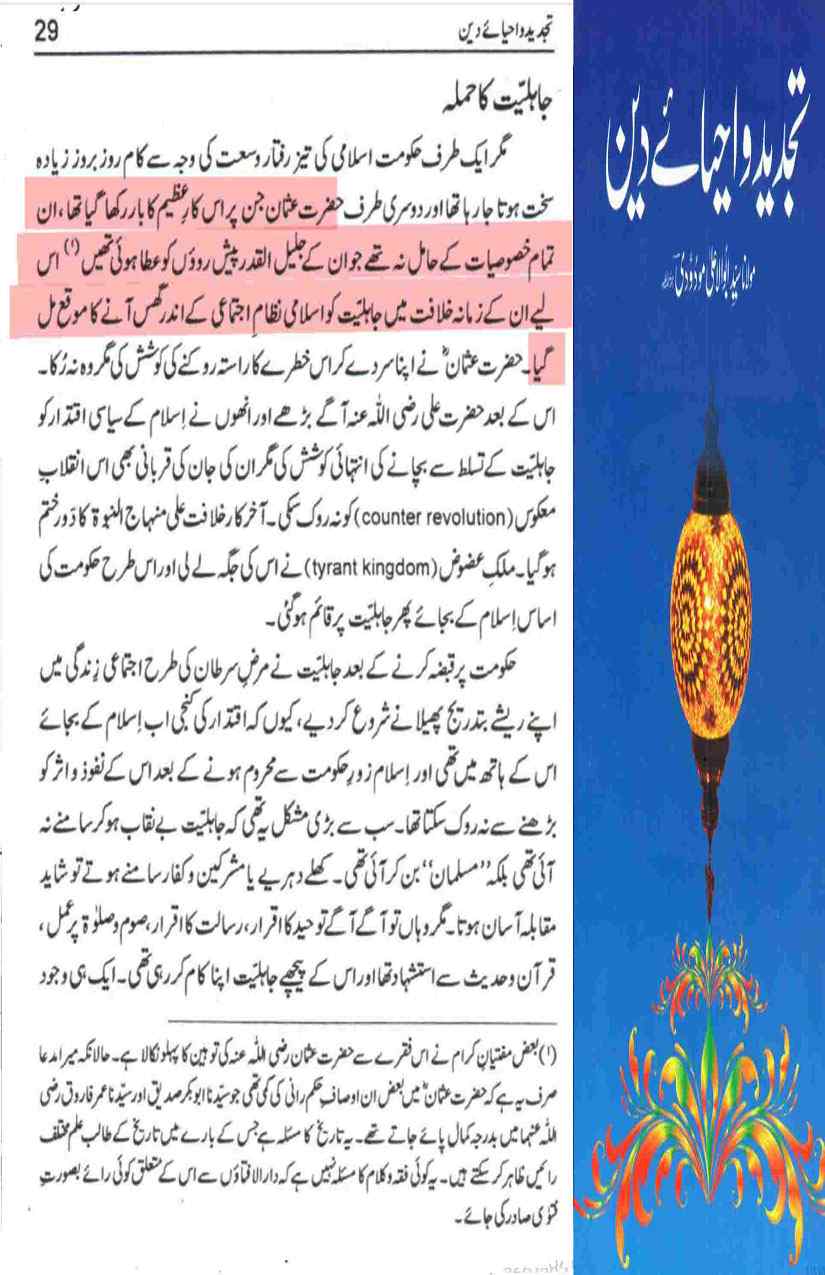 29
تجدید و احیائے دین
جاہلیّت کا حملہ
مگر ایک طرف حکومت اسلامی کی تیز رفتار وسعت کی وجہ سے کام روز بروز زیادہ
سخت ہوتا جا رہا تھا اور دوسری طرف حضرت عثمان جن پر اس کارِ عظیم کا بار رکھا گیا تھا، ان
تمام خصوصیات کے حامل نہ تھے جو ان کے جلیل القدر پیش روؤں کو عطا ہوئی تھیں (۱) اس
لیے ان کے زمانہ خلافت میں جاہلیّت کو اسلامی نظامِ اجتماعی کے اندر گھس آنے کا موقع مل
گیا۔ حضرت عثمانؓ نے اپنا سر دے کر اس خطرے کا راستہ روکنے کی کوشش کی مگر وہ نہ رُکا۔
اس کے بعد حضرت علی رضی اللہ عنہ آگے بڑھے اور انھوں نے اِسلام کے سیاسی اقتدار کو
جاہلیّت کے تسلط سے بچانے کی انتہائی کوشش کی مگر ان کی جان کی قربانی بھی اس انقلابِ
معکوس (counter revolution) کو نہ روک سکی۔ آخر کار خلافت علیٰ منہاج النبوۃ کا دَور ختم
ہو گیا۔ ملکِ عضوض (tyrant kingdom) نے اس کی جگہ لے لی اور اس طرح حکومت کی
اساس اِسلام کے بجائے پھر جاہلیّت پر قائم ہو گئی۔
حکومت پر قبضہ کرنے کے بعد جاہلیّت نے مرضِ سرطان کی طرح اجتماعی زِندگی میں
اپنے ریشے بتدریج پھیلانے شروع کر دیے، کیوں کہ اقتدار کی کنجی اب اِسلام کے بجائے
اس کے ہاتھ میں تھی اور اِسلام زورِ حکومت سے محروم ہونے کے بعد اس کے نفوذ و اثر کو
بڑھنے سے نہ روک سکتا تھا۔ سب سے بڑی مشکل یہ تھی کہ جاہلیّت بے نقاب ہو کر سامنے نہ
آئی تھی بلکہ ”مسلمان“ بن کر آئی تھی۔ کھلے دہریے یا مشرکین و کفار سامنے ہوتے تو شاید
مقابلہ آسان ہوتا۔ مگر وہاں تو آگے آگے توحید کا اقرار، رسالت کا اقرار، صوم و صلوٰۃ پر عمل،
قرآن و حدیث سے استشہاد تھا اور اس کے پیچھے جاہلیّت اپنا کام کر رہی تھی۔ ایک ہی وجود
(۱) بعض مفتیانِ کرام نے اس فقرے سے حضرت عثمان رضی اللہ عنہ کی توہین کا پہلو نکالا ہے۔ حالانکہ میرا مدعا
صرف یہ ہے کہ حضرت عثمانؓ میں بعض ان اوصافِ حکم رانی کی کمی تھی جو سیّدنا ابوبکر صدیق اور سیّدنا عمر فاروق رضی
اللہ عنہما میں بدرجہ کمال پائے جاتے تھے۔ یہ تاریخ کا مسئلہ ہے جس کے بارے میں تاریخ کے طالب علم مختلف
رائیں ظاہر کر سکتے ہیں۔ یہ کوئی فقہ و کلام کا مسئلہ نہیں ہے کہ دار الافتاؤں سے اس کے متعلق کوئی رائے بصورتِ
فتویٰ صادر کی جائے۔
تجدید و احیائے دین
مولانا سیّد ابوالاعلیٰ مودودیؒ